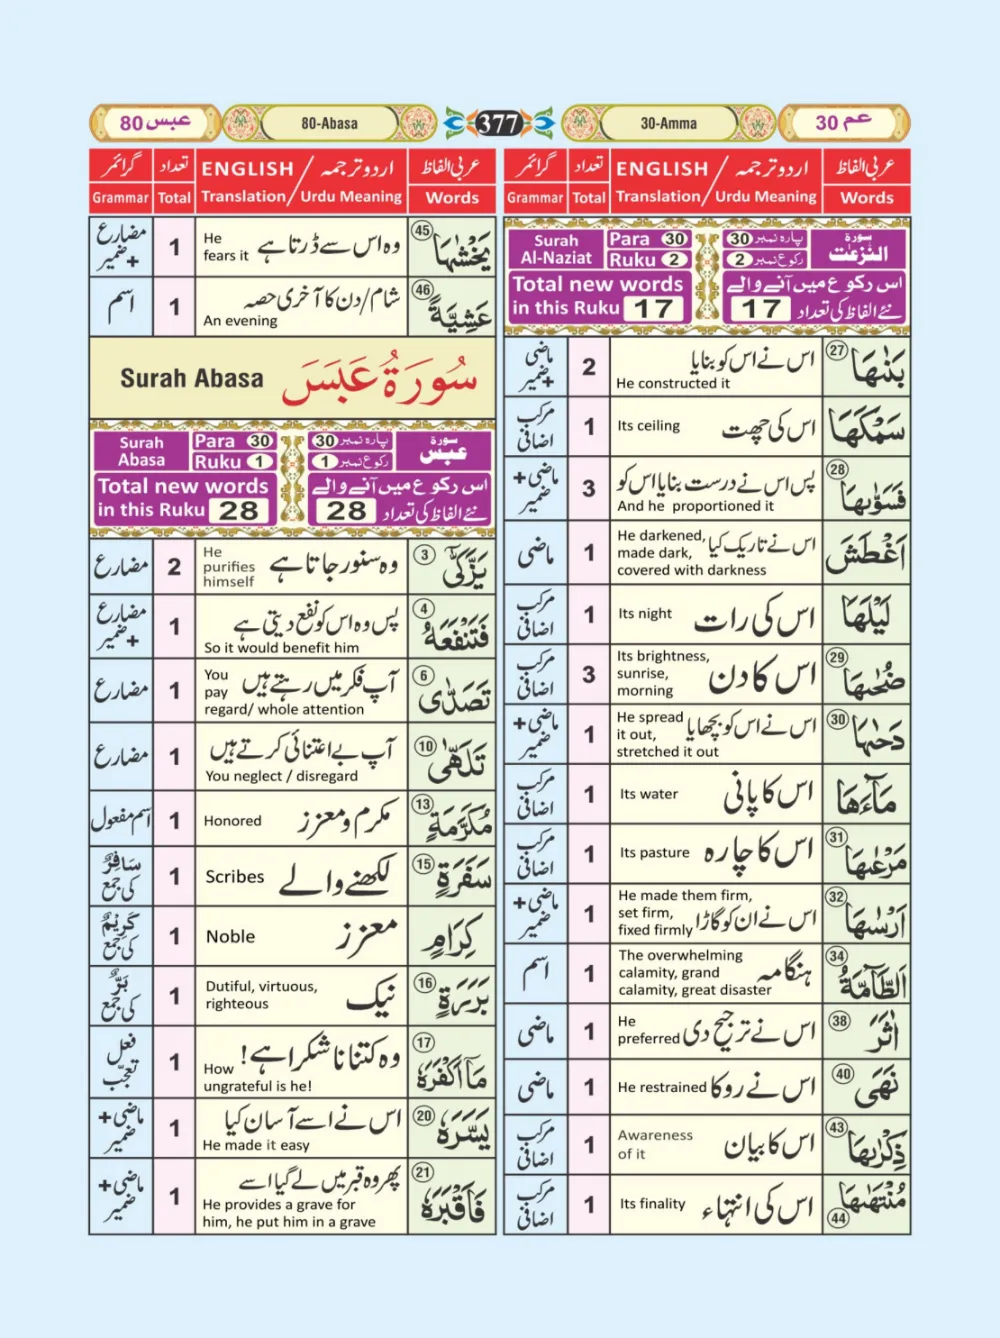 عم 30
30-Amma
377
80-Abasa
عبس 80
عربی الفاظ اردو ترجمہ / ENGLISH تعداد گرائمر
Words Urdu Meaning / Translation Total Grammar
سورة النّٰزعٰت پارہ نمبر 30 Para 30 Surah Al-Naziat
رکوع نمبر 2 Ruku 2
اس رکوع میں آنے والے Total new words
نئے الفاظ کی تعداد 17 in this Ruku 17
27 بَنٰىهَا اس نے اس کو بنایا He constructed it 2 ماضی + ضمیر
سَمْكَهَا اس کی چھت Its ceiling 1 مرکب اضافی
28 فَسَوّٰىهَا پس اس نے درست بنایا اس کو And he proportioned it 3 ماضی + ضمیر
اَغْطَشَ اس نے تاریک کیا He darkened, made dark, covered with darkness 1 ماضی
لَيْلَهَا اس کی رات Its night 1 مرکب اضافی
29 ضُحٰىهَا اس کا دن Its brightness, sunrise, morning 3 مرکب اضافی
30 دَحٰىهَا اس نے اس کو بچھایا He spread it out, stretched it out 1 ماضی + ضمیر
مَآءَهَا اس کا پانی Its water 1 مرکب اضافی
31 مَرْعٰىهَا اس کا چارہ Its pasture 1 مرکب اضافی
32 اَرْسٰىهَا اس نے ان کو گاڑا He made them firm, set firm, fixed firmly 1 ماضی + ضمیر
34 اَلطَّآمَّةُ ہنگامہ The overwhelming calamity, grand calamity, great disaster 1 اسم
38 اٰثَرَ اس نے ترجیح دی He preferred 1 ماضی
40 نَهَى اس نے روکا He restrained 1 ماضی
43 ذِكْرٰىهَا اس کا بیان Awareness of it 1 مرکب اضافی
44 مُنْتَهٰىهَا اس کی انتہاء Its finality 1 مرکب اضافی
عربی الفاظ اردو ترجمہ / ENGLISH تعداد گرائمر
Words Urdu Meaning / Translation Total Grammar
45 يَخْشٰىهَا وہ اس سے ڈرتا ہے He fears it 1 مضارع + ضمیر
46 عَشِيَّةً شام/دن کا آخری حصہ An evening 1 اسم
سُورَةُ عَبَسَ Surah Abasa
سورة عبس پارہ نمبر 30 Para 30 Surah Abasa
رکوع نمبر 1 Ruku 1
اس رکوع میں آنے والے Total new words
نئے الفاظ کی تعداد 28 in this Ruku 28
3 يَزَّكّٰٓى وہ سنور جاتا ہے He purifies himself 2 مضارع
4 فَتَنْفَعَهُ پس وہ اس کو نفع دیتی ہے So it would benefit him 1 مضارع + ضمیر
6 تَصَدّٰى آپ فکر میں رہتے ہیں You pay regard/ whole attention 1 مضارع
10 تَلَهّٰى آپ بے اعتنائی کرتے ہیں You neglect / disregard 1 مضارع
13 مُكَرَّمَةٍ مکرم و معزز Honored 1 اسم مفعول
15 سَفَرَةٍ لکھنے والے Scribes 1 سَافِرٌ کی جمع
كِرَامٍ معزز Noble 1 كَرِيْمٌ کی جمع
16 بَرَرَةٍ نیک Dutiful, virtuous, righteous 1 بَرٌّ کی جمع
17 مَآ اَكْفَرَهٗ وہ کتنا ناشکرا ہے! How ungrateful is he! 1 فعل تعجّب
20 يَسَّرَهٗ اس نے اسے آسان کیا He made it easy 1 ماضی + ضمیر
21 فَاَقْبَرَهٗ پھر وہ قبر میں لے گیا اسے He provides a grave for him, he put him in a grave 1 ماضی + ضمیر